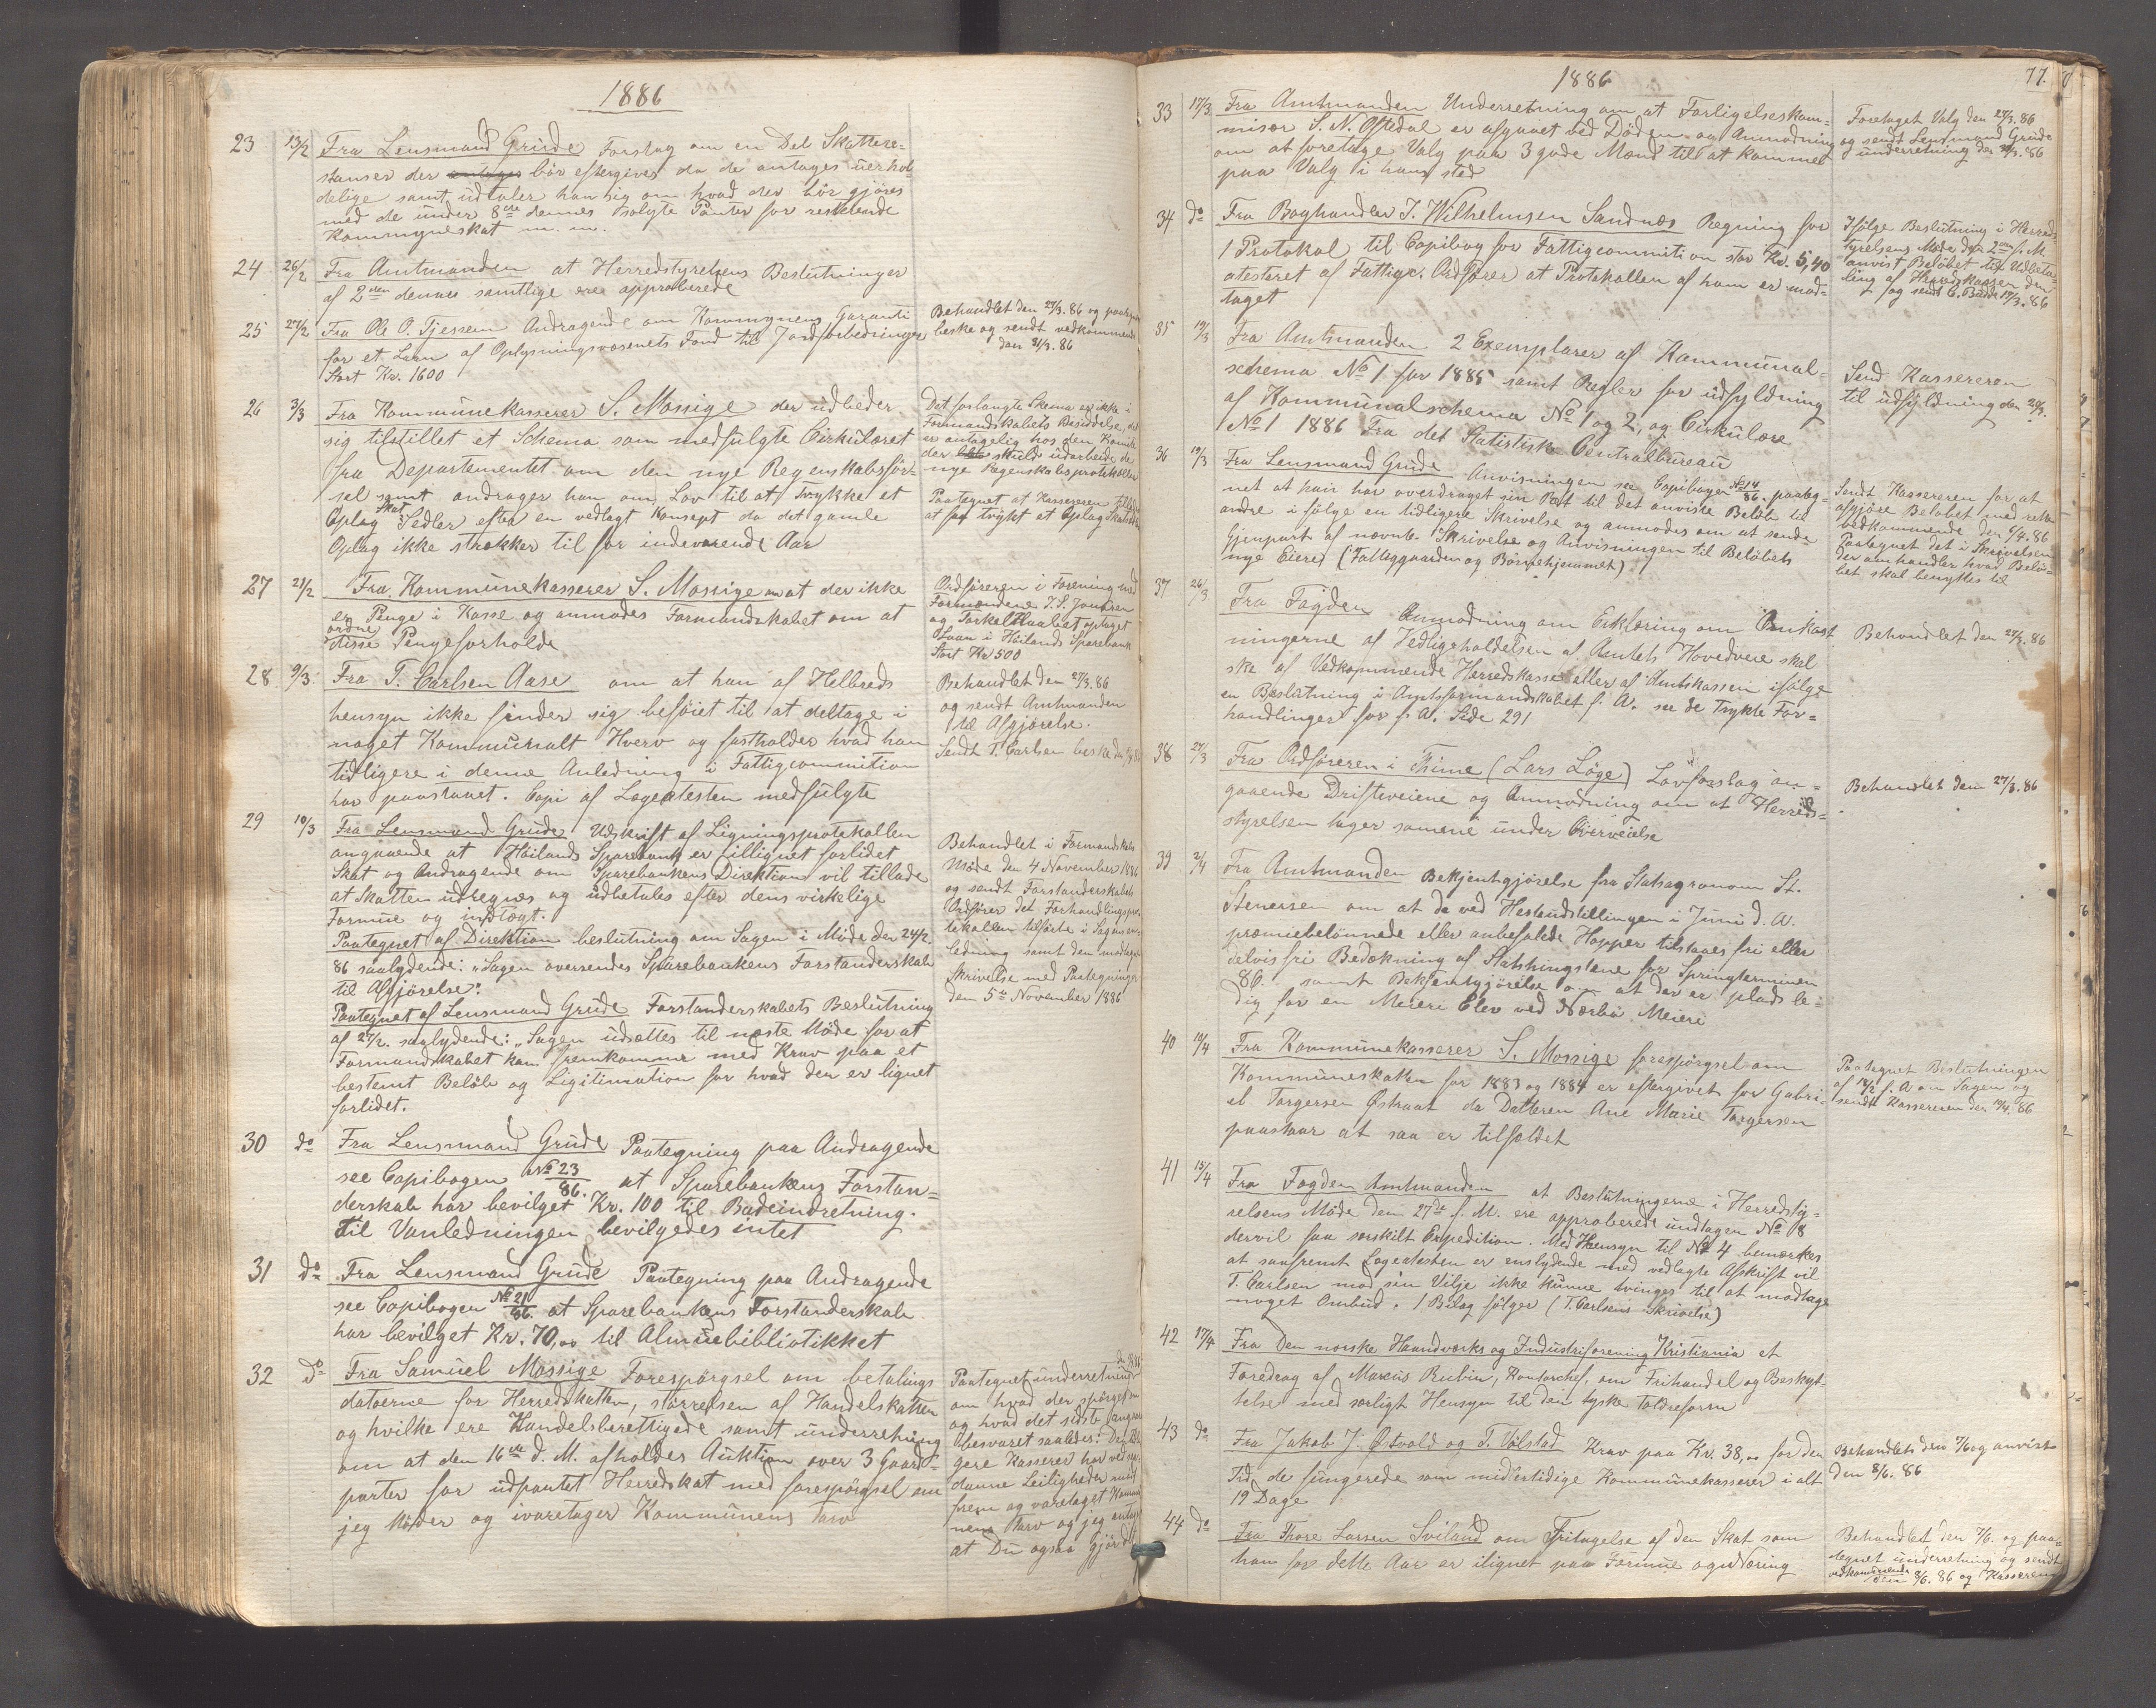 1886
23 13/2 Fra Lensmand Grude Forslag om en Del Skattere=
stanser der bör eftergives da de antages uerhol=
delige samt udtaler han sig om hvad der bör gjöres
med de under 8de dennes solgte Panter for resterende
Kommuneskat m. m.
24 26/2 Fra Amtmanden at Herredstyrelsens Beslutninger
af 2den dennes samtlige ere approberede
25 27/2 Fra Ole O. Tjessem Andragende om Kommunens Garanti
for et Laan af Oplysningsvæsenets Fond til Jordforbedringer
Stort Kr. 1600
Behandlet den 27/3. 86 og paategnet
beske og sendt vedkommende
den 31/3. 86
26 3/3 Fra Kommunekasserer S. Mossige der udbeder
sig tilstillet et Schema som medfulgte Cirkulæret
fra Departementet om den nye Regenskabsför=
sel samt andrager han om Lov til at Trykke et
Oplag Skat Sedler efter en vedlagt Konsept da det gamle
Oplag ikke strækker til for indeværende Aar
Det forlangte Skema er ikke i
Formandskabets Besiddelse, det
er antagelig hos den Komite
der skulde udarbeide de
nye Regenskabsprotokoller
Paategnet at Kassereren
at faa trykt et Oplag
27 21/2 Fra Kommunekasserer S. Mossige om at der ikke
er Penge i Kasse og anmodes Formandskabet om at
ordne disse Pengeforholde
Ordföreren i Forening med
Formændene J. S. Jonssen
og Torkel Haabet optaget
Laan i Höilands Sparebank
Stort Kr 500
28 9/3. Fra T. Carlsen Aase om at han af Helbreds
hensyn ikke finder sig beföiet til at deltage i
noget Kommunalt Hverv og fastholder hvad han
tidligere i denne Anledning i Fattigcommition
har paastaaet. Copi af Lægeatesten medfulgte
Behandlet den 27/3. 86
og sendt Amtmanden
til Afgjörelse.
Sendt T. Carlsen beske den
29 10/3 Fra Lensmand Grude Udskrift af Ligningsprotokollen
angaaende at Höilands Sparebank er illignet forlidet
Skat og Andragende om Sparebankens Direktion vil tillade
at Skatten udregnes og udbetales efter dens virkelige
Formue og indtægt.
Paategnet af Direktion beslutning om Sagen i Möde den 24/2.
86 saalydende: "Sagen oversendes Sparebankens Forstanderskab
til Afgjörelse".
Paategnet af Lensmand Grude Forstanderskabets Beslutning
af 27/2. saalydende: "Sagen udsættes til næste Möde for at
Formandskabet kan fremkomme med Krav paa et
bestemt Belöb og Ligitimation for hvad der er lignet
forlidet.
Behandlet i Formandskabs
Möde den 4 November 1886
og sendt Forstanderskabets
Ordförer det Forhandlingspro=
tokollen tilförte i Sagens an=
ledning samt den modtagne
Skrivelse med Paategninger
den 5te November 1886
30 do Fra Lensmand Grude Paategning paa Andragende
see Copibogen No 23/86. at Sparebankens Forstan=
derskab har bevilget Kr. 100 til Badeindretning.
til Vanledningen bevilgedes intet
31 do Fra Lensmand Grude Paategning paa Andragende
see Copibogen No 21/86. at Sparebankens Forstanderskab
har bevilget Kr. 70,00 til Almuebibliotikket
32 do Fra Samuel Mossige Forespörgsel om betalings
datoerne for Herredskatten, störrelsen af Handelskatten
og hvilke ere Handelsberettigede samt underretning
om at den 16de d. M. afholdes Auktion over 3 Gaard=
parter for udpantet Herredskat med forespörgsel om
jeg möder og ivaretager Kommunens Tarv
Paategnet underretning
om hvad der spörges om
og hvad det sidste angaar
besvaret saaledes: Den tidli
gere Kasserer har ved saa
danne Leiligheder mödt
frem og varetaget Kommu
nens Tarv og jeg antager
at Du ogsaa gjör det
1886
77.
33 17/3. Fra Amtmanden Underretning om at Forligelseskom=
misær S. N. Oftedal er afgaaet ved Döden og Anmodning
om at foretage Valg paa 3 gode Mænd til at komme
paa Valg i hans sted
Foretaget Valg den 27/3. 86
og sendt Lensmand Grude
underretning den 31/3. 86
34 do Fra Boghandler J. Wilhelmsen Sandnæs Regning for
1 Protokol til Copibog for Fattigcommition stor Kr. 5,40
atesteret af Fattigc. Ordförer at Protokollen af ham er mod=
taget
Ifölge Beslutning i Herreds=
tyrelsens Möde den 2den f. M.
anvist Belöbet til Udbeta=
ling af Herredskassen den
og sendt C. Bade 19/3. 86
35 19/3 Fra Amtmanden 2 Exemplarer af Kommunal=
schema No 1 for 1885 samt Regler for udfyldning
af Kommunalschema No 1 og 2, og Cirkulære
No 1 1886 fra det Statistiske Centralbureau
Send Kassereren
til udfyldning den 20/3.
36 19/3 Fra Lensmand Grude Anvisningen see Copibogen No 14/86. paateg=
net at han har overdraget sin Ret til det anviste Belöb til
andre i fölge en tidligere Skrivelse og anmodes om at sende
Gjenpart af nævnte Skrivelse og Anvisningen til Belöbets
nye Eiere (Fattiggaarden og Börnehjemmet)
Sendt Kassereren for at
afgjöre Belöbet med rette
vedkommende den 6/4. 86
Paategnet det i Skrivelsen
der omhandler hvad Belö=
bet skal benyttes til
37 26/3 Fra Fogden Anmodning om Erklæring om Omkost
ningerne af Vedligeholdelsen af Amtets Hovedveie skal
ske af Vedkommende Herredskasse eller af Amtskassen ifölge
en Beslutning i Amtsformandskabet f. A. see de Trykte For=
handlinger for f. A. Side 291
Behandlet den 27/3. 86
38 27/3 Fra Ordföreren i Thime (Lars Löge) Lovforslag an=
gaaende Drifteveiene og Anmodning om at Herreds=
styrelsen tager samene under Overveielse
Behandlet den 27/3. 86
39 2/4 Fra Amtmanden Bekjentgjörelse fra Statsagronom St.
Stenersen om at de ved Hesteudstillingen i Juni d. A.
præmiebelönnede eller anbefalede Hopper tilstaaes fri eller
delvis fri Bedækning af Statshingstene for Springterminen
86. samt Bekjentgjörelse om at der er plads le=
dig for en Meieri Elev ved Nærbö Meieri
40 10/4 Fra Kommunekasserer S. Mossige forespörgsel om
Kommuneskatten for 1883 og 1884 er eftergivet for Gabri=
el Torgersen Østraat da Datteren Ane Marie Torgersen
paastaar at saa er tilfældet
Paategnet Beslutningen
af 18/2 f. A om Sagen og
sendt Kassereren den 10/4. 86
41 15/4 Fra Fogden Amtmanden at Beslutningerne i Herredsty=
relsens Möde den 27de f. M. ere approberede undtagen No 8
dervil faa særskilt Expedition. Med Hensyn til No 4 bemærkes
at saafremt Lægeatesten er enslydende med vedlagte Afskrift vil
T. Carlsen mod sin Vilje ikke kunne tvinges til at modtage
noget Ombud. 1 Bilag fölger (T. Carlsens Skrivelse)
42 17/4 Fra Den norske Haandværks og Industriforening Kristiania et
Foredrag af Marcus Rubin, Kontorchef, om Frihandel og Beskyt=
telse med særligt Hensyn til den tyske Toldreform
43 do Fra Jakob J. Østvold og T. Völstad Krav paa Kr. 38,00 for den
Tid de fungerede som midlertidige Kommunekasserer i alt
19 Dage
Behandlet den 7/6 og anvist
den 8/6. 86
44 do Fra Thore Larsen Sviland om Fritagelse af den Skat som
han for dette Aar er ilignet paa Formue og Næring
Behandlet den 7/6. og paa=
tegnet underretning og sendt
vedkommende den 8/6. 86 og Kassereren